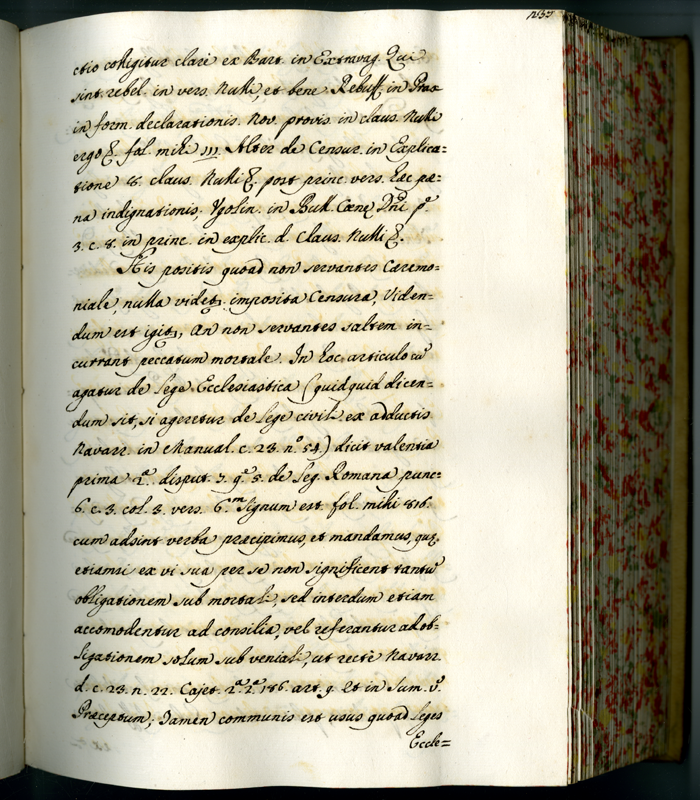 ctio colligitur clare ex Bart. in Extravag. Qui
sint. rebel. in vers. Nulli, et bene Rebuff. in Prax
in form. declarationis. Nov. provis. in claus. Nulli
ergo &. fol. mihi 111. Alter de Censur. in Explica=
tione 8. claus. Nulli &. post princ. vers. Hæc pæ=
na indignationis. Ygolin. in Bull. Cœnę Dñi. p.ª
3. c. 8. in princ. in explic. d. Claus. Nulli &.
His positis quoad non servantes Cæremo=
niale, nulla videt.r imposita Censura, Viden=
dum est igit.r, An non servantes saltem in=
currant peccatum mortale. In hoc articulo cũ
agatur de Lege Ecclesiastica (quidquid dicen=
dum sit, si ageretur de Lege civili ex adductis
Navarr. in Manual. c. 23. n.º 54.) dicit valentia
prima 2.ª disput. 7. q. 5. de Leg. Romana punc=
6. c. 3. col. 3. vers. 6.m Signum est. fol. mihi 816.
cum adsint verba præcipimus, et mandamus, quę,
etiamsi ex vi sua per se non significent tantũ
obligationem sub mortali, sed interdum etiam
accomodentur ad consilia, vel referantur ad ob=
ligationem solum sub veniali, ut rectè Navarr.
d. c. 23. n. 22. Cajet. 2.ª 2.ª 186. art. 9. et in Sum. v.º
Præceptum; Tamen communis est usus quoad Leges
Eccle=